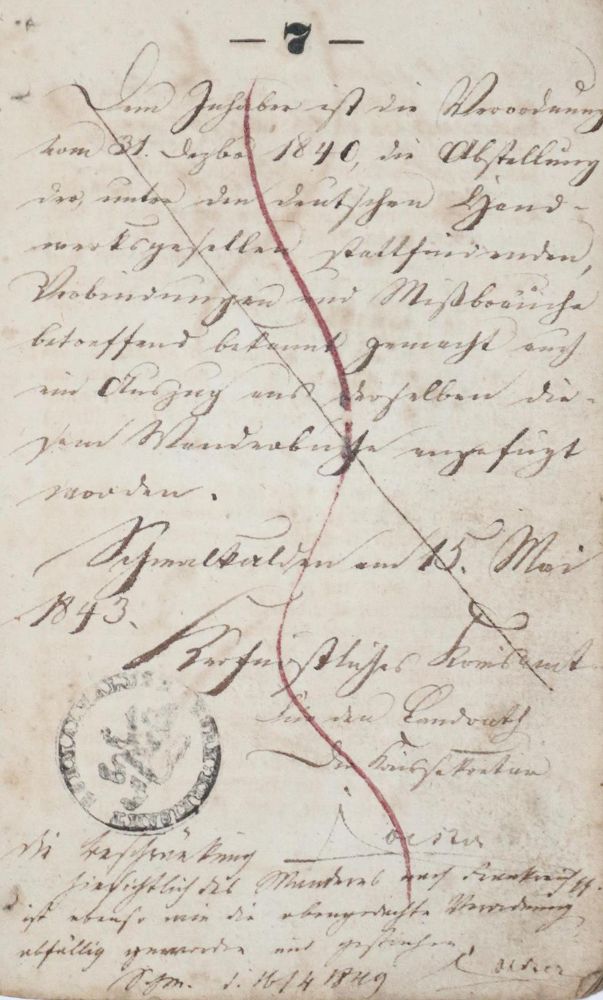 — 7 —
Dem Inhaber ist die Verordnung
vom 31. Dezbr 1840, die Abstellung
der, unter den deutschen Hand-
werksgesellen stattfindenden,
Verbindungen und Mißbräuche
betreffend bekannt gemacht auch
ein Auszug aus derselben die-
sem Wanderbuche angefügt
worden.
Schmalkalden am 15. Mai
1843.
Kurfürstliches Kreisamt
Für den Landrath
Der Kreissekretar
die Beschränkung
hinsichtlich des Wanderns nach Frankreich
ist ebenso wie die obengedachte Verordnung
abfällig geworden und gestrichen.
Schm. d. 16/4 1849